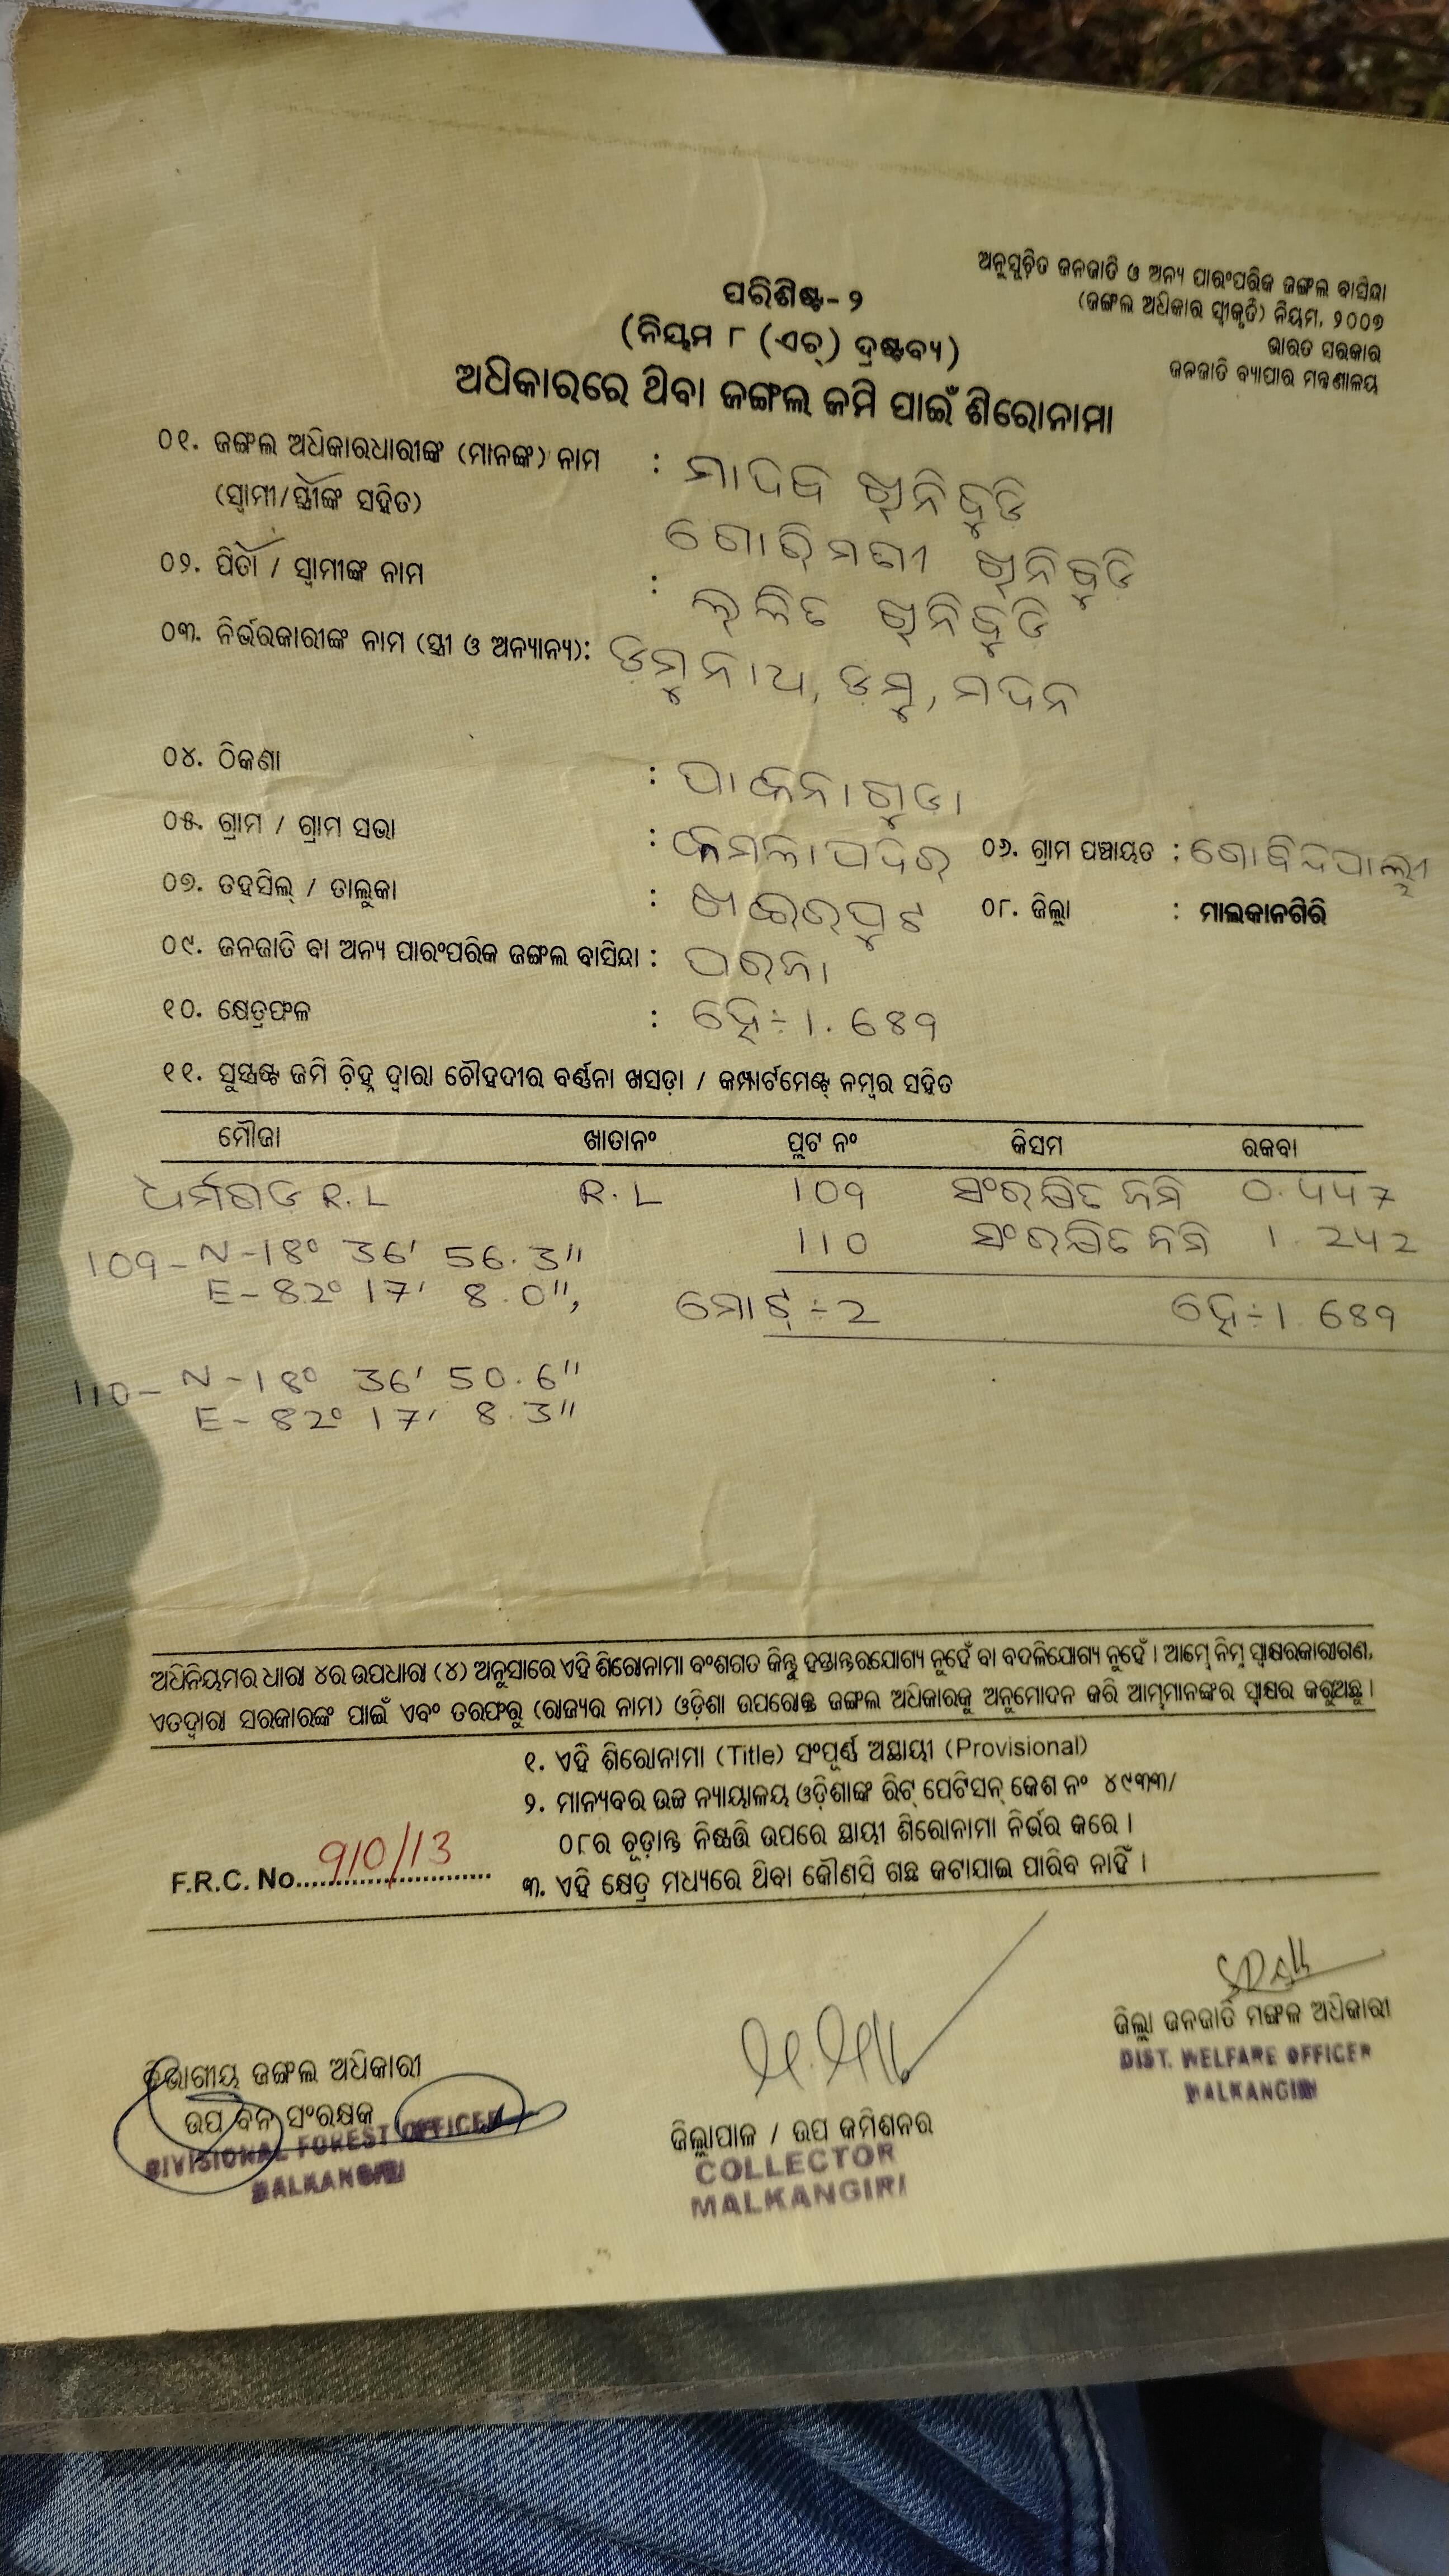 ଅନୁସୂଚିତ ଜନଜାତି ଓ ଅନ୍ୟ ପାରଂପରିକ ଜଙ୍ଗଲ ବାସିନ୍ଦା
(ଜଙ୍ଗଲ ଅଧିକାର ସ୍ୱୀକୃତି) ନିୟମ, ୨୦୦୭
ଭାରତ ସରକାର
ଜନଜାତି ବ୍ୟାପାର ମନ୍ତ୍ରଣାଳୟ
ପରିଶିଷ୍ଟ-୨
(ନିୟମ ୮ (ଏଚ୍) ଦ୍ରଷ୍ଟବ୍ୟ)
ଅଧିକାରରେ ଥିବା ଜଙ୍ଗଲ ଜମି ପାଇଁ ଶିରୋନାମା
୦୧. ଜଙ୍ଗଲ ଅଧିକାରଧାରୀଙ୍କ (ମାନଙ୍କ) ନାମ : ମାଦବ ଖିନିବୁଡି
(ସ୍ୱାମୀ/ସ୍ତ୍ରୀଙ୍କ ସହିତ) ଖିନିବୁଡି
୦୨. ପିତା / ସ୍ୱାମୀଙ୍କ ନାମ : ଖିନିବୁଡି
୦୩. ନିର୍ଭରକାରୀଙ୍କ ନାମ (ସ୍ତ୍ରୀ ଓ ଅନ୍ୟାନ୍ୟ): ଡମ୍ବୁନାଥ, ଡମ୍ବୁ, ମଦନ
୦୪. ଠିକଣା : ପାକନାଗୁଡା
୦୫. ଗ୍ରାମ / ଗ୍ରାମ ସଭା : କମଲାପଦର ୦୬. ଗ୍ରାମ ପଞ୍ଚାୟତ : ଗୋବିନ୍ଦପାଲ୍ଲୀ
୦୭. ତହସିଲ୍ / ତାଲୁକା : ଖଇରପୁଟ ୦୮. ଜିଲ୍ଲା : ମାଲକାନଗିରି
୦୯. ଜନଜାତି ବା ଅନ୍ୟ ପାରଂପରିକ ଜଙ୍ଗଲ ବାସିନ୍ଦା : ପରଜା
୧୦. କ୍ଷେତ୍ରଫଳ : ହେ÷1.689
୧୧. ସୁସ୍ପଷ୍ଟ ଜମି ଚିହ୍ନ ଦ୍ୱାରା ଚୌହଦୀର ବର୍ଣ୍ଣନା ଖସଡ଼ା / କମ୍ପାର୍ଟମେଣ୍ଟ୍ ନମ୍ବର ସହିତ
ମୌଜା ଖାତାନଂ ପ୍ଲଟ ନଂ କିସମ ରକବା
ଧର୍ମଗଡ R.L R.L 109 ସଂରକ୍ଷିତ ଜମି 0.447
109- N-18° 36' 56.3" 110 ସଂରକ୍ଷିତ ଜମି 1.242
E-82° 17' 8.0", ମୋଟ୍ ÷ 2 ହେ÷1.689
110- N-18° 36' 50.6"
E-82° 17' 8.3"
ଅଧିନିୟମର ଧାରା ୪ର ଉପଧାରା (୪) ଅନୁସାରେ ଏହି ଶିରୋନାମା ବଂଶଗତ କିନ୍ତୁ ହସ୍ତାନ୍ତରଯୋଗ୍ୟ ନୁହେଁ ବା ବଦଳିଯୋଗ୍ୟ ନୁହେଁ । ଆମ୍ଭେ ନିମ୍ନ ସ୍ୱାକ୍ଷରକାରୀଗଣ,
ଏତଦ୍ଦ୍ୱାରା ସରକାରଙ୍କ ପାଇଁ ଏବଂ ତରଫରୁ (ରାଜ୍ୟର ନାମ) ଓଡ଼ିଶା ଉପରୋକ୍ତ ଜଙ୍ଗଲ ଅଧିକାରକୁ ଅନୁମୋଦନ କରି ଆମ୍ଭମାନଙ୍କର ସ୍ୱାକ୍ଷର କରୁଅଛୁ ।
୧. ଏହି ଶିରୋନାମା (Title) ସଂପୂର୍ଣ୍ଣ ଅସ୍ଥାୟୀ (Provisional)
୨. ମାନ୍ୟବର ଉଚ୍ଚ ନ୍ୟାୟାଳୟ ଓଡ଼ିଶାଙ୍କ ରିଟ୍ ପେଟିସନ୍ କେଶ ନଂ ୪୯୩୩/
୦୮ର ଚୂଡ଼ାନ୍ତ ନିଷ୍ପତ୍ତି ଉପରେ ସ୍ଥାୟୀ ଶିରୋନାମା ନିର୍ଭର କରେ ।
F.R.C. No. 910/13 ୩. ଏହି କ୍ଷେତ୍ର ମଧ୍ୟରେ ଥିବା କୌଣସି ଗଛ କଟାଯାଇ ପାରିବ ନାହିଁ ।
ଜିଲ୍ଲା ଜନଜାତି ମଙ୍ଗଳ ଅଧିକାରୀ
DIST. WELFARE OFFICER
MALKANGIRI
ବିଭାଗୀୟ ଜଙ୍ଗଲ ଅଧିକାରୀ
ଉପ ବନ ସଂରକ୍ଷକ
DIVISIONAL FOREST OFFICER
MALKANGIRI
ଜିଲ୍ଲାପାଳ / ଉପ କମିଶନର
COLLECTOR
MALKANGIRI